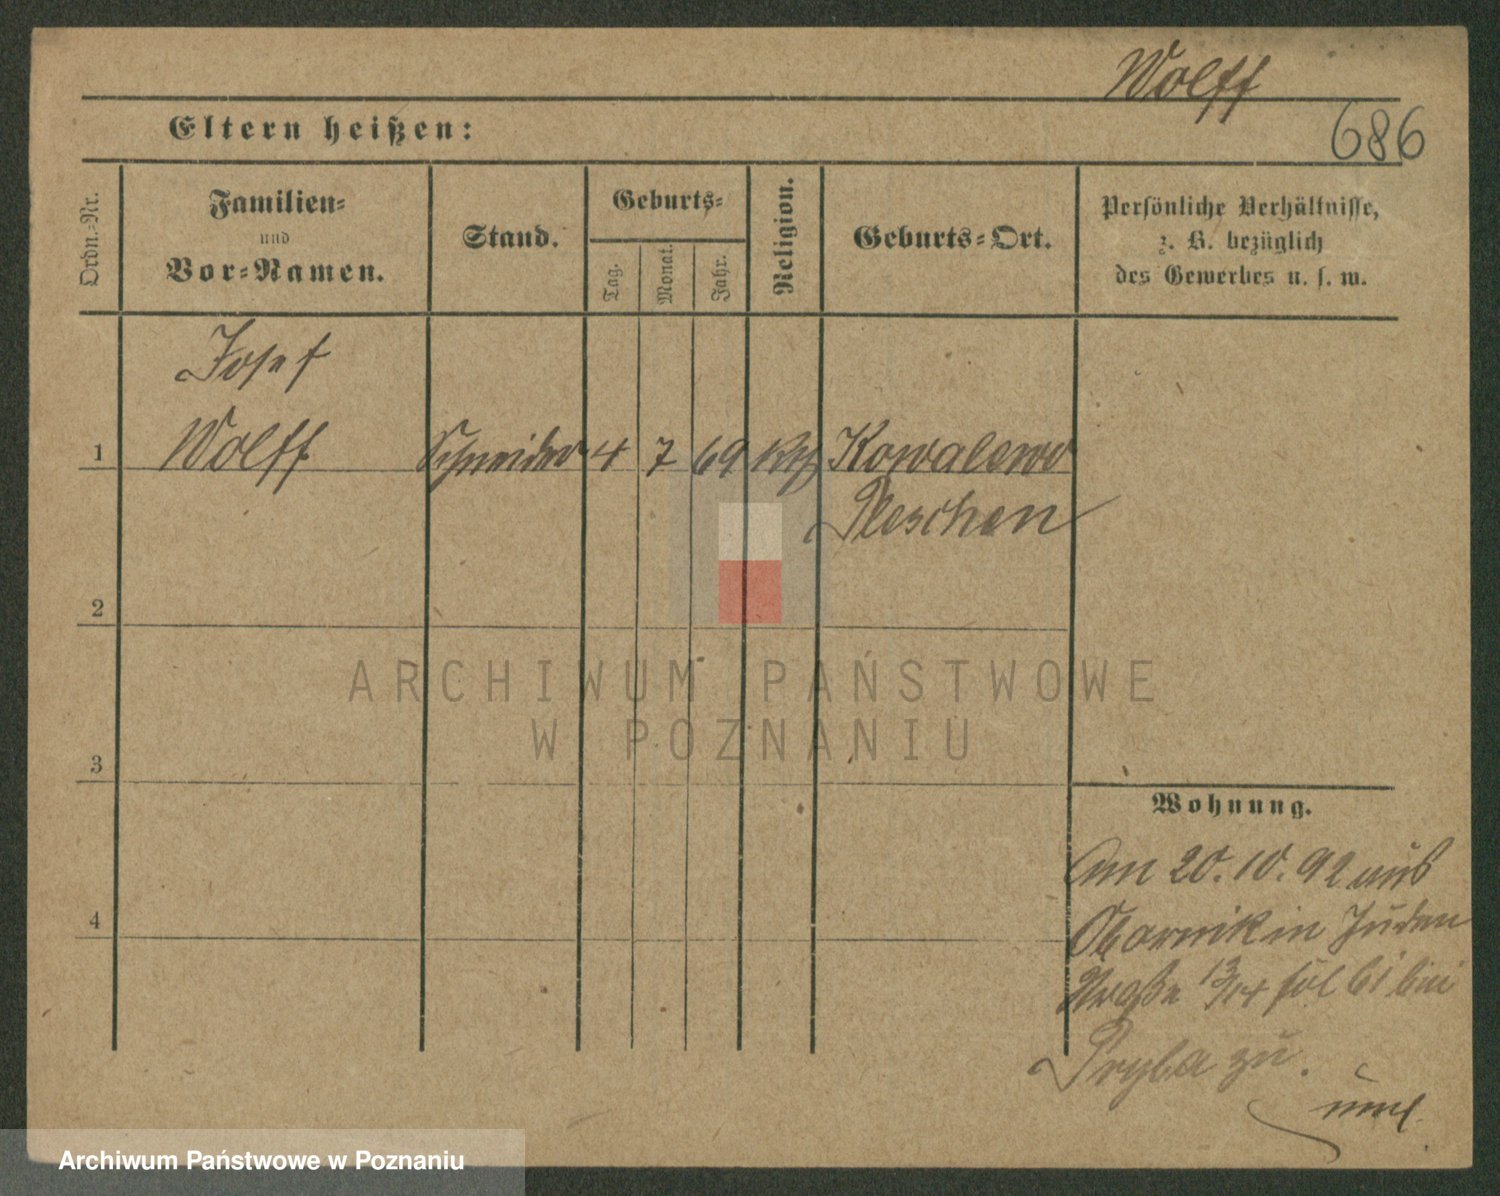 Wolff
686
Eltern heißen:
Ordn.-Nr.
Familien-
und
Vor-Namen.
Stand.
Geburts-
Tag.
Monat.
Jahr.
Religion.
Geburts-Ort.
Persönliche Verhältnisse,
z. B. bezüglich
des Gewerbes u. s. w.
Josef
1 Wolff Schneider 4 7 69 kth Kowalewo
Pleschen
2
ARCHIWUM PAŃSTWOWE
W POZNANIU
3
Wohnung.
Am 20. 10. 92 aus
4
Obornik in Juden
Straße 13/14 bei
Pryba zu.
Archiwum Państwowe w Poznaniu